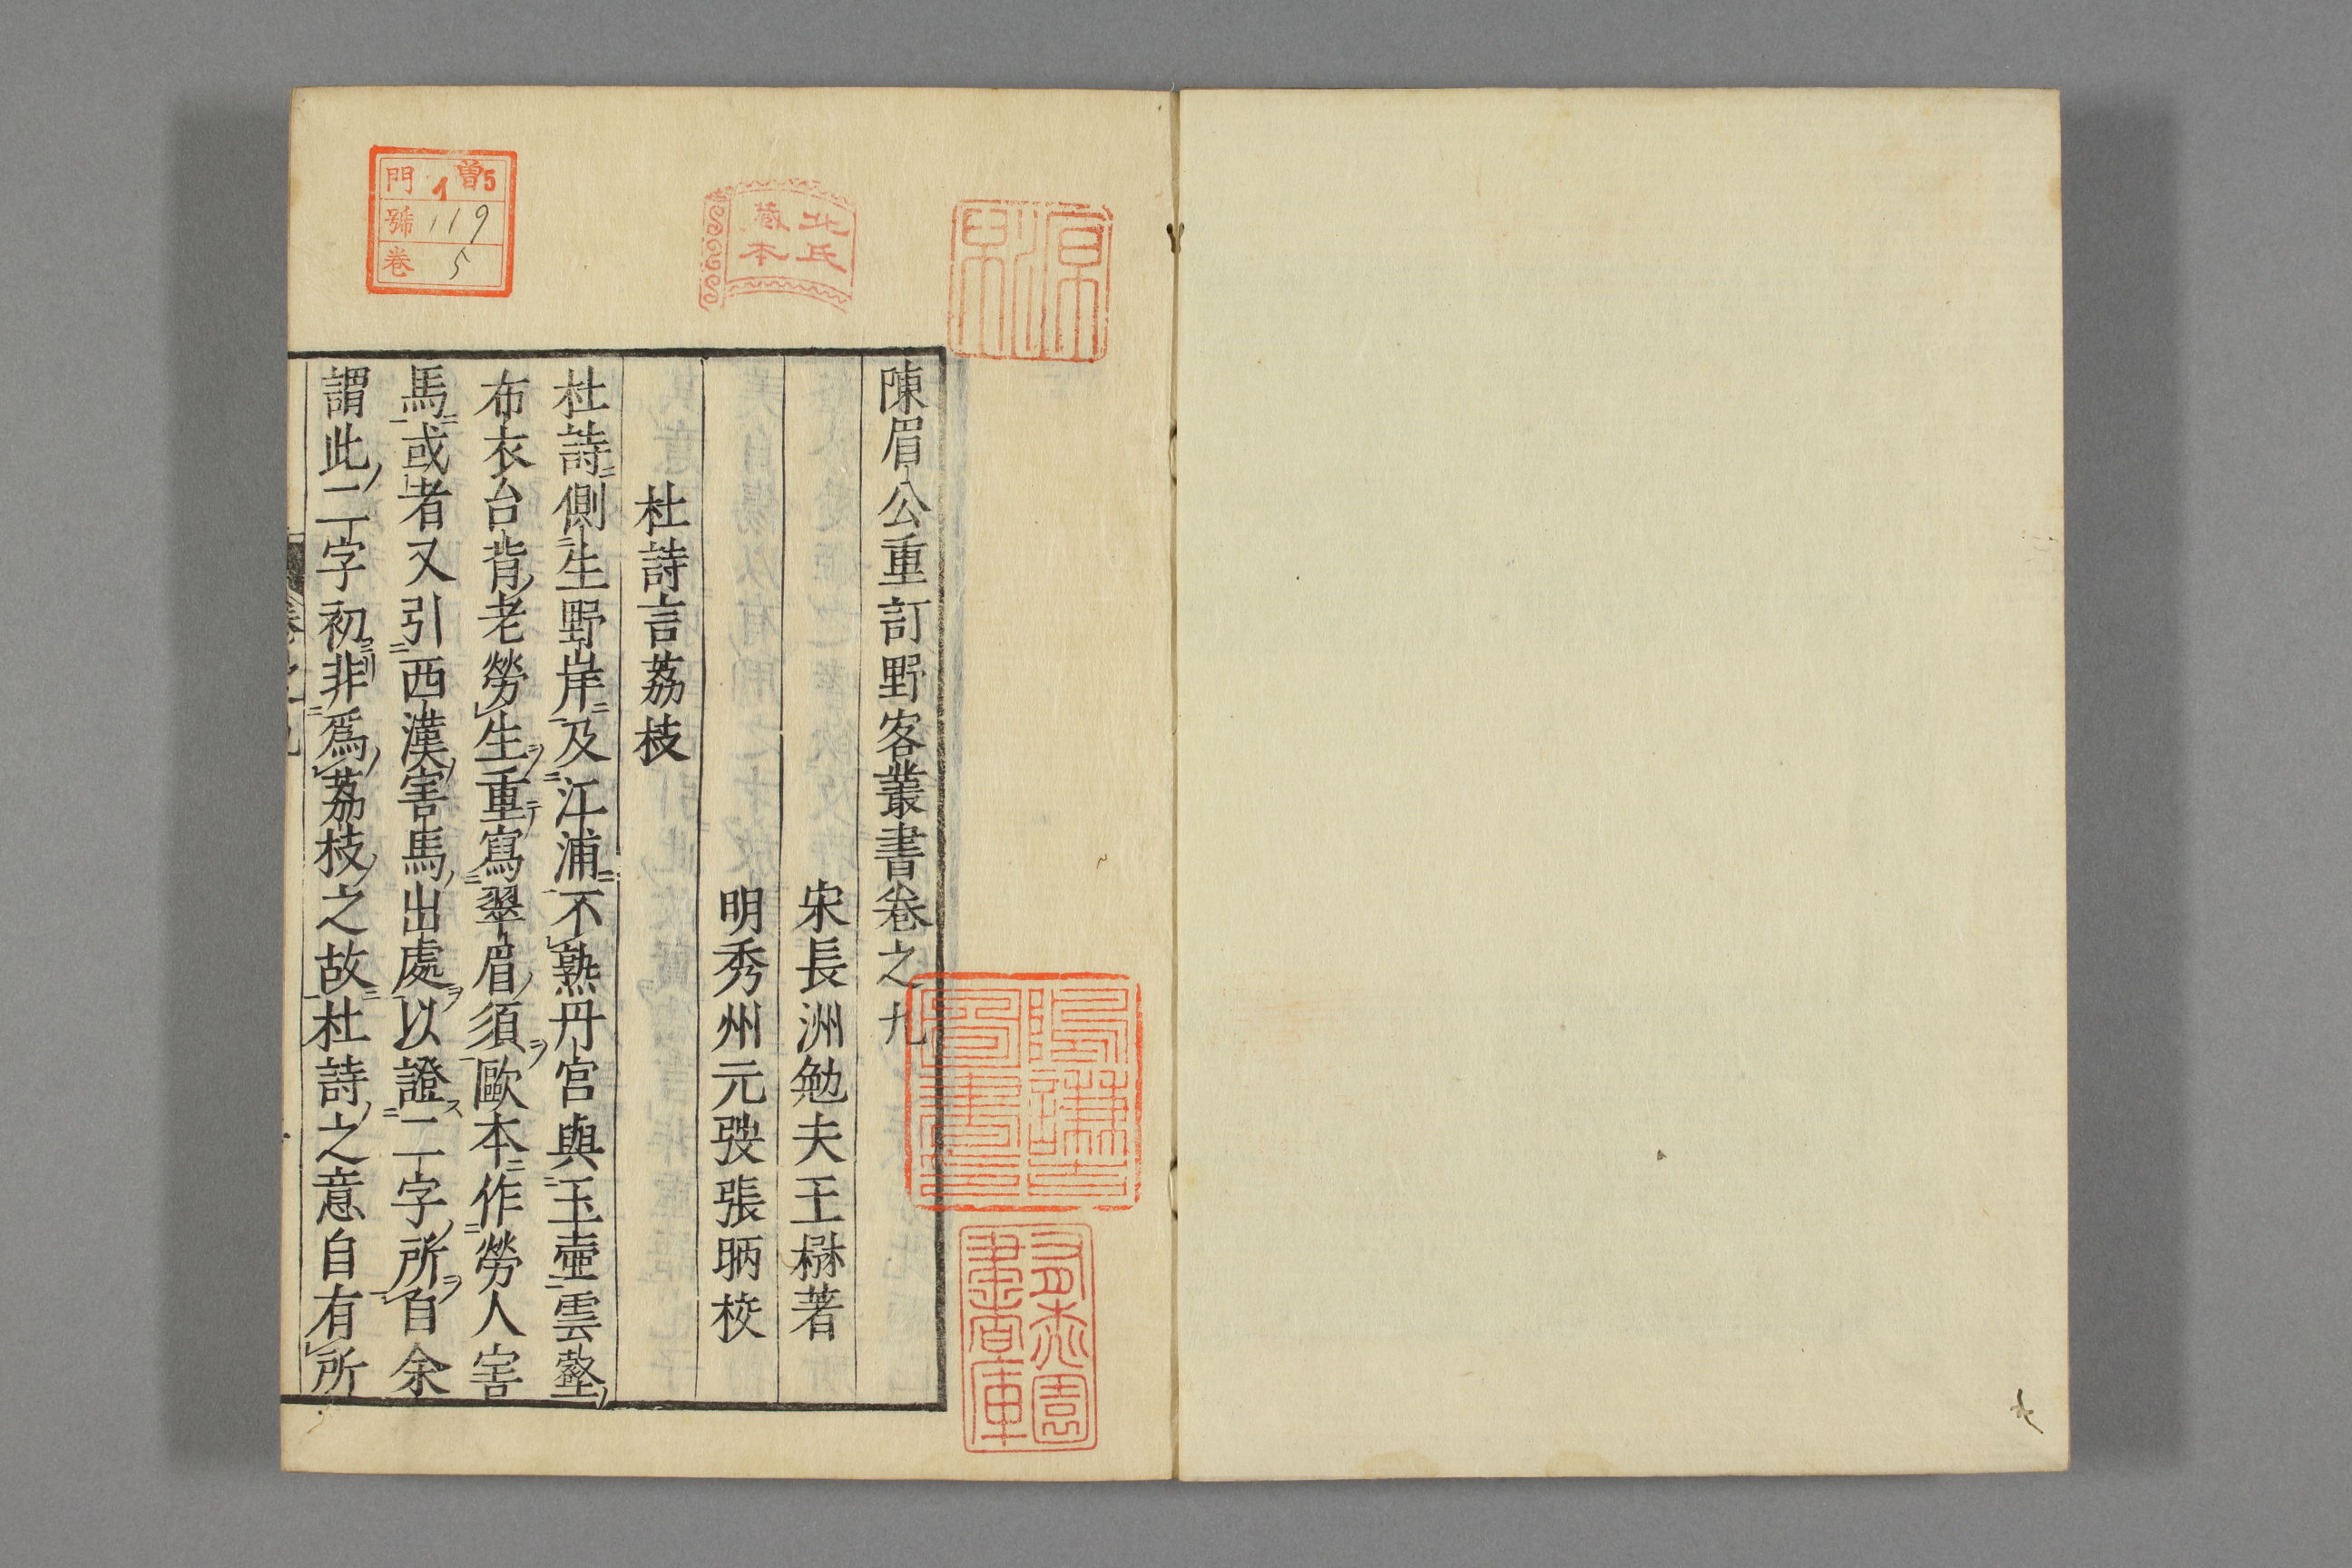 陳眉公重訂野客叢書卷之九
宋長洲勉夫王楙著
明秀州元弢張昞校
杜詩言荔枝
杜詩側生野岸及江浦不熟丹宮與玉壷雲壑
布衣台背老勞生重寫翠眉須歐本作勞人害
馬或者又引西漢害馬出處以證二字所自余
謂此二字初非爲荔枝之故杜詩之意自有所
北氏
藏本
門 曽5 1
號 119
卷 5